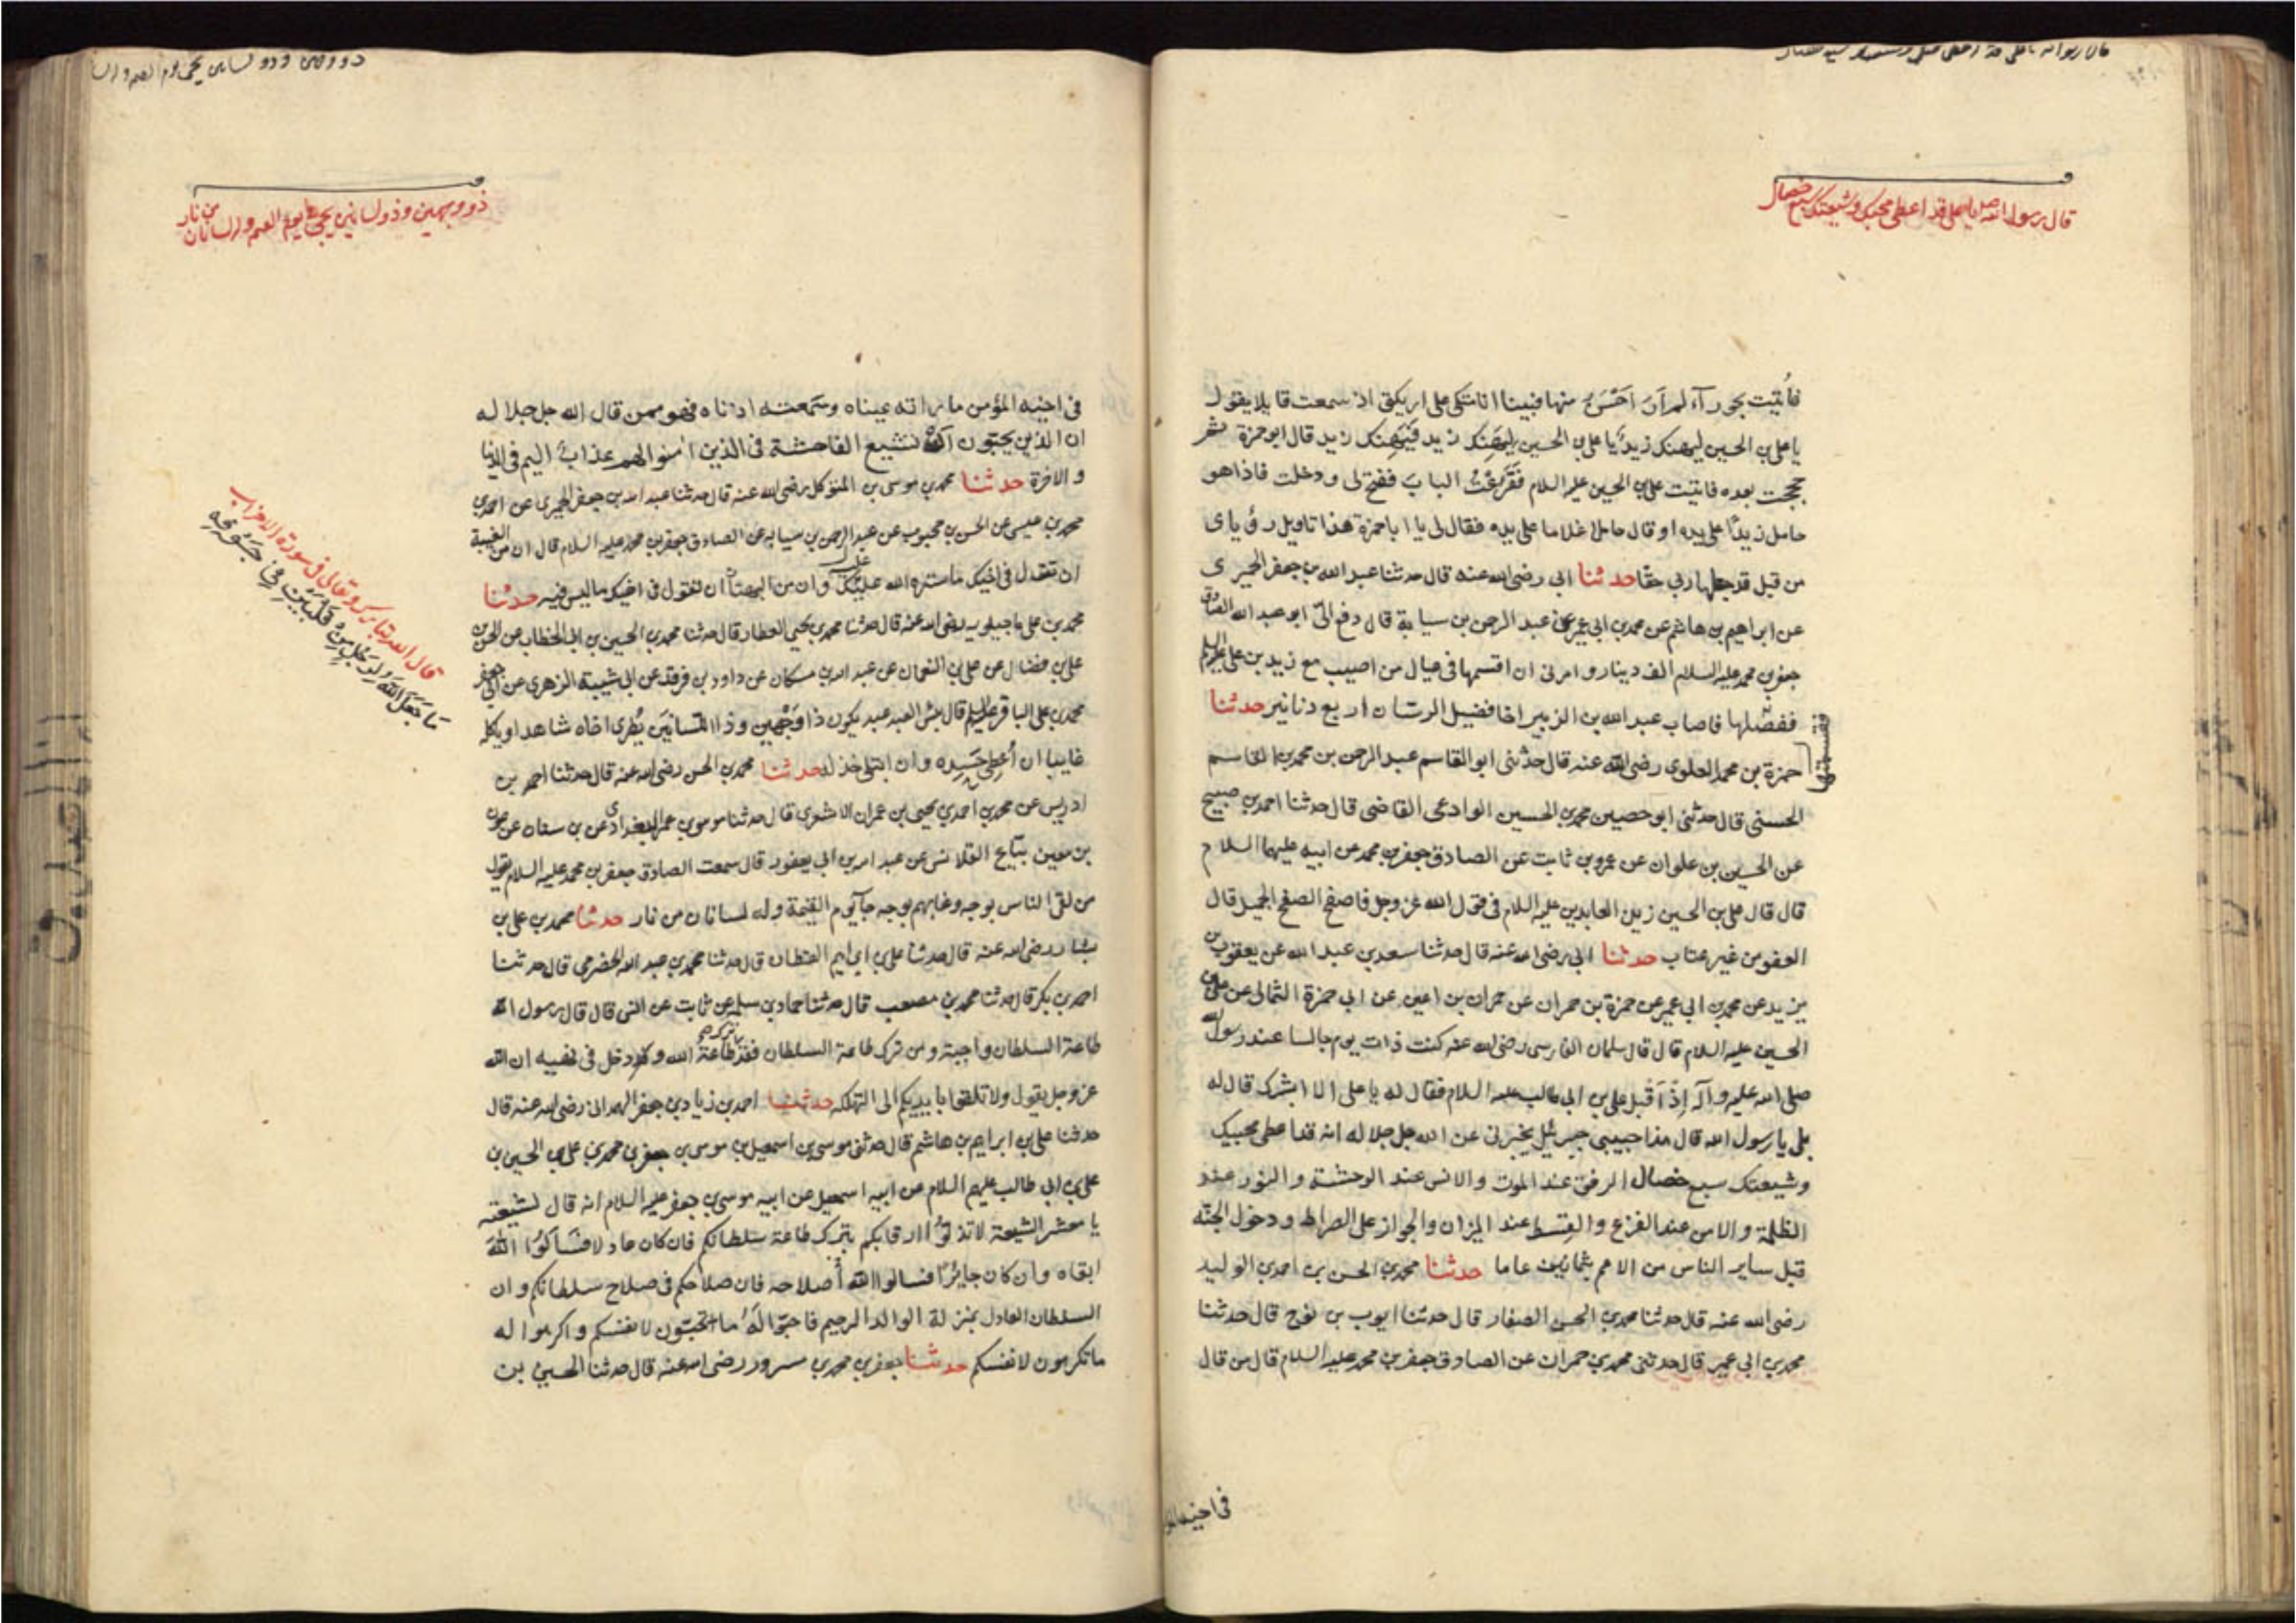 قال رسول الله صلى يا على قد اعطى محبيك وشيعتك سبع خصال
فأتيت بحورآء لم ار احسن منها فبينا انا متكى على اريكتى اذ سمعت قايلا يقول
يا على بن الحسين ليهنك زيد يا على بن الحسين ليهنك زيد فيهنك زيد قال ابو حمزة ثم
حججت بعده فاتيت على بن الحسين عليه السلام فقرعت الباب ففتح لى ودخلت فاذا هو
حامل زيدا على يده او قال حاملا غلاما على يده فقال لى يا ابا حمزة هذا تاويل رؤياى
من قبل قد جعلها ربى حقا حدثنا ابى رضى الله عنه قال حدثنا عبد الله بن جعفر الحميرى
عن ابراهيم بن هاشم عن محمد بن ابى عمير عن عبد الرحمن بن سيابة قال دفع الىّ ابو عبد الله الصادق
جعفر بن محمد عليه السلام الف دينار وامرنى ان اقسمها فى عيال من اصيب مع زيد بن على عليه السلم
ففصّلها فاصاب عبد الله بن الزبير اخا فضيل الرسان اربع دنانير حدثنا
فقسمتها
حمزة بن محمد العلوى رضى الله عنه قال حدثنى ابو القاسم عبد الرحمن بن محمد بن القاسم
الحسنى قال حدثنى ابو حصين محمد بن الحسين الوادعى القاضى قال حدثنا احمد بن صبيح
عن الحسين بن علوان عن عمرو بن ثابت عن الصادق جعفر بن محمد عن ابيه عليهما السلام
قال قال على بن الحسين زين العابدين عليه السلام فى قول الله عز وجل فاصفح الصفح الجميل قال
العفو من غير عتاب حدثنا ابى رضى الله عنه قال حدثنا سعد بن عبد الله عن يعقوب بن
يزيد عن محمد بن ابى عمير عن حمزة بن حمران عن حمران بن اعين عن ابى حمزة الثمالى عن على بن
الحسين عليه السلام قال قال سلمان الفارسى رضى الله عنه كنت ذات يوم جالسا عند رسول الله
صلى الله عليه وآله إذ أقبل على بن ابى طالب عليه السلام فقال له يا على الا ابشرك قال له
بلى يا رسول الله قال هذا حبيبى جبرئيل يخبرنى عن الله جل جلاله انه قد اعطى محبيك
وشيعتك سبع خصال الرفق عند الموت والانس عند الوحشة والنور عند
الظلمة والامن عند الفزع والقسط عند الميزان والجواز على الصراط ودخول الجنة
قبل ساير الناس من الامم بثمانين عاما حدثنا محمد بن الحسن بن احمد بن الوليد
رضى الله عنه قال حدثنا محمد بن الحسن الصفار قال حدثنا ايوب بن نوح قال حدثنا
محمد بن ابى عمير قال حدثنى محمد بن حمران عن الصادق جعفر بن محمد عليه السلام قال من قال
فى اخيه المؤ
ذو وجهين وذو لسانين يجئ يوم القيمه ولسانان من نار
فى اخيه المؤمن ما راته عيناه وسمعته اذناه فهو ممن قال الله جل جلاله
ان الذين يحبون أن تشيع الفاحشة فى الذين امنوا لهم عذاب اليم فى الدنيا
والاخرة حدثنا محمد بن موسى بن المتوكل رضى الله عنه قال حدثنا عبد الله بن جعفر الحميرى عن احمد بن
محمد بن عيسى عن الحسن بن محبوب عن عبد الرحمن بن سيابه عن الصادق جعفر بن محمد عليه السلام قال ان من الغيبة
ان تقول فى اخيك ما ستره الله عليك وان من البهتان ان تقول فى اخيك ما ليس فيه حدثنا
محمد بن على ماجيلويه رضى الله عنه قال حدثنا محمد بن يحيى العطار قال حدثنا محمد بن الحسين بن ابى الخطاب عن الحسن بن
على بن فضال عن على بن النعمان عن عبد الله بن مسكان عن داود بن فرقد عن ابى شيبة الزهرى عن ابى جعفر
محمد بن على الباقر عليه السلم قال بئس العبد عبد يكون ذا وجهين وذا لسانين يُطرى اخاه شاهدا وياكله
غايبا ان أعطى حسده وان ابتلى خذله حدثنا محمد بن الحسن رضى الله عنه قال حدثنا احمد بن
ادريس عن محمد بن احمد بن يحيى بن عمران الاشعرى قال حدثنا موسى بن عمر البغدادى عن بن سنان عن عون
بن معين بيّاع القلانس عن عبد الله بن ابى يعفور قال سمعت الصادق جعفر بن محمد عليه السلام يقول
من لقى الناس بوجه وعابهم بوجه جآء يوم القيمة وله لسانان من نار حدثنا محمد بن على بن
بشار رضى الله عنه قال حدثنا على بن ابراهيم القطان قال حدثنا محمد بن عبد الله الحضرمى قال حدثنا
احمد بن بكر قال حدثنا محمد بن مصعب قال حدثنا حماد بن سلمه عن ثابت عن انس قال قال رسول الله
طاعة السلطان واجبة ومن ترك طاعة السلطان فقد ترك طاعة الله ودخل فى نهيه ان الله
عز وجل يقول ولا تلقوا بايديكم الى التهلكه حدثنا احمد بن زياد بن جعفر الهمدانى رضى الله عنه قال
حدثنا على بن ابراهيم بن هاشم قال حدثنى موسى بن اسمعيل بن موسى بن جعفر بن محمد بن على بن الحسين بن
على بن ابى طالب عليهم السلام عن ابيه اسمعيل عن ابيه موسى بن جعفر عليه السلام انه قال لشيعته
يا معشر الشيعة لا تذلوا رقابكم بترك طاعة سلطانكم فان كان عادلا فسألوا الله
ابقاه وان كان جايرًا فسالوا الله أصلاحه فان صلاحكم فى صلاح سلطانكم وان
السلطان العادل بمنزلة الوالد الرحيم فاحبّوا له ما تحبّون لانفسكم واكرهوا له
ما تكرهون لانفسكم حدثنا جعفر بن محمد بن مسرور رضى الله عنه قال حدثنا الحسين بن
قال الله تبارك وتعالى فى سورة الاحزاب
مَا جَعَلَ اللّٰهُ لِرَجُلٍ مِنْ قَلْبَيْنِ فِى جَوْفِهِ